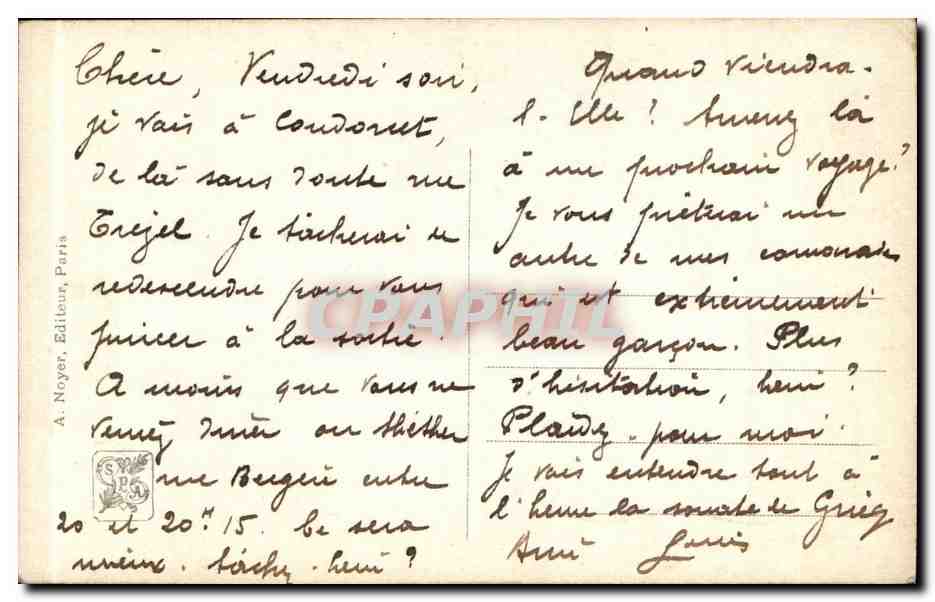 Chère, Vendredi soir,
je vais à Condorcet,
de là sans doute rue
Trézel. Je tâcherai de
redescendre pour vous
pincer à la sortie.
A moins que vous ne
veniez dîner au
rue Bergère entre
20 et 20H15. Ce sera
mieux. tâchez. hein?
Quand viendra-
t-Elle? Amenez là
à un prochain voyage!
Je vous prêterai un
autre de mes camarades
qui est extrêmement
beau garçon. Plus
d'hésitation, hein?
Plaidez pour moi.
Je vais entendre tout à
l'heure la sonate de Grieg
Louis
A. Noyer, Editeur, Paris
CPAPHIL